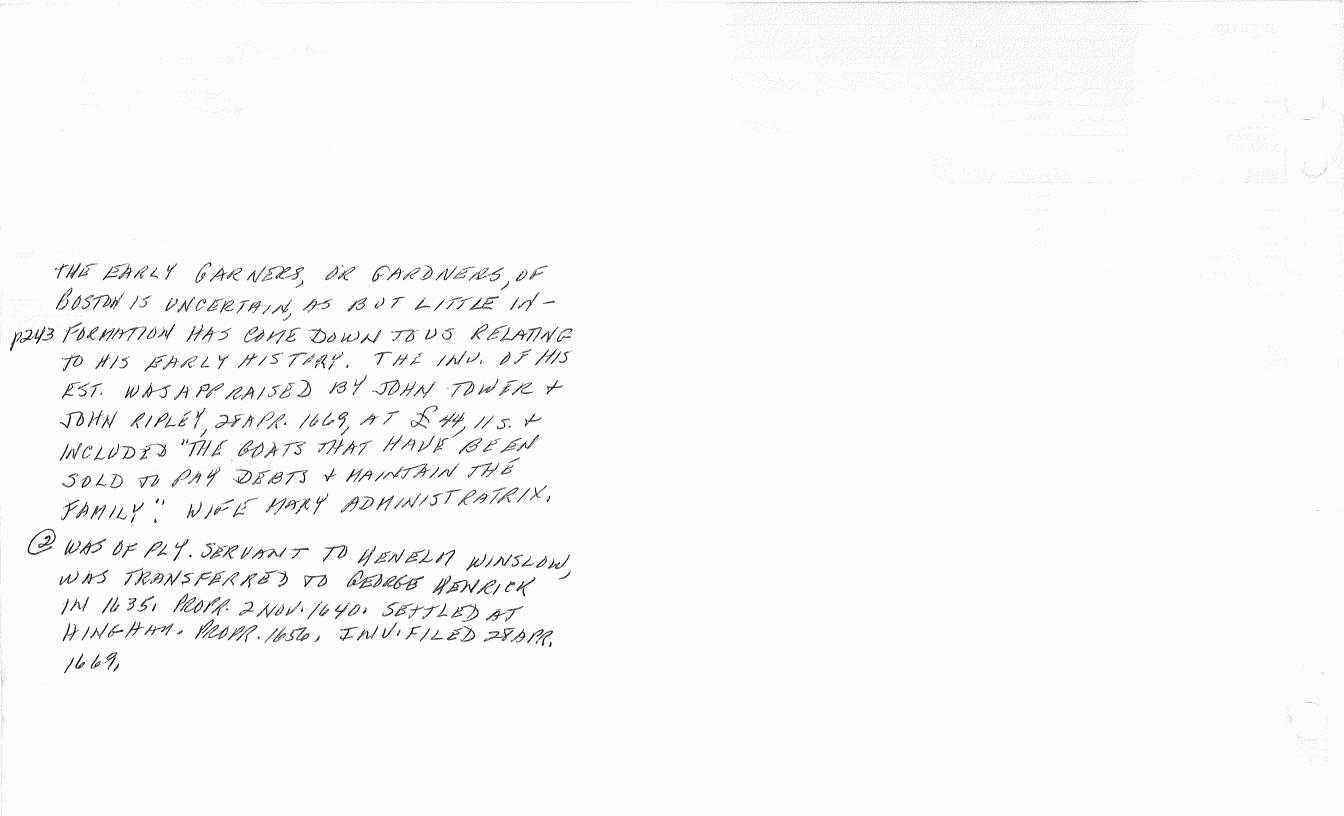 THE EARLY GARNERS, OR GARDNERS, OF
BOSTON IS UNCERTAIN, AS BUT LITTLE IN-
p243 FORMATION HAS COME DOWN TO US RELATING
TO HIS EARLY HISTORY. THE INV. OF HIS
EST. WAS APPRAISED BY JOHN TOWER +
JOHN RIPLEY, 28 APR. 1669, AT £44, 11 S. +
INCLUDED "THE GOATS THAT HAVE BEEN
SOLD TO PAY DEBTS + MAINTAIN THE
FAMILY". WIFE MARY ADMINISTRATRIX.
② WAS OF PLY. SERVANT TO KENELM WINSLOW,
WAS TRANSFERRED TO GEORGE KENRICK
IN 1635. PROPR. 2 NOV. 1640. SETTLED AT
HINGHAM. PROPR. 1656. INV. FILED 28 APR.
1669.